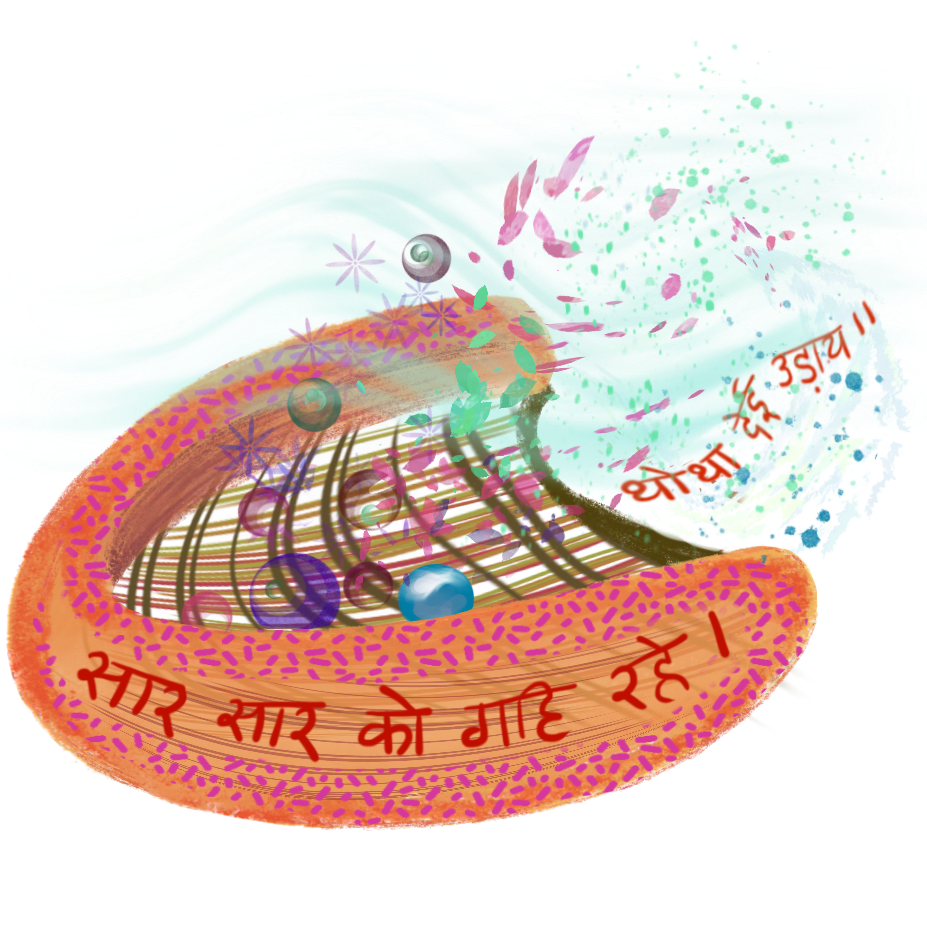 सार सार को गहि रहे।
थोथा देई उड़ाय॥